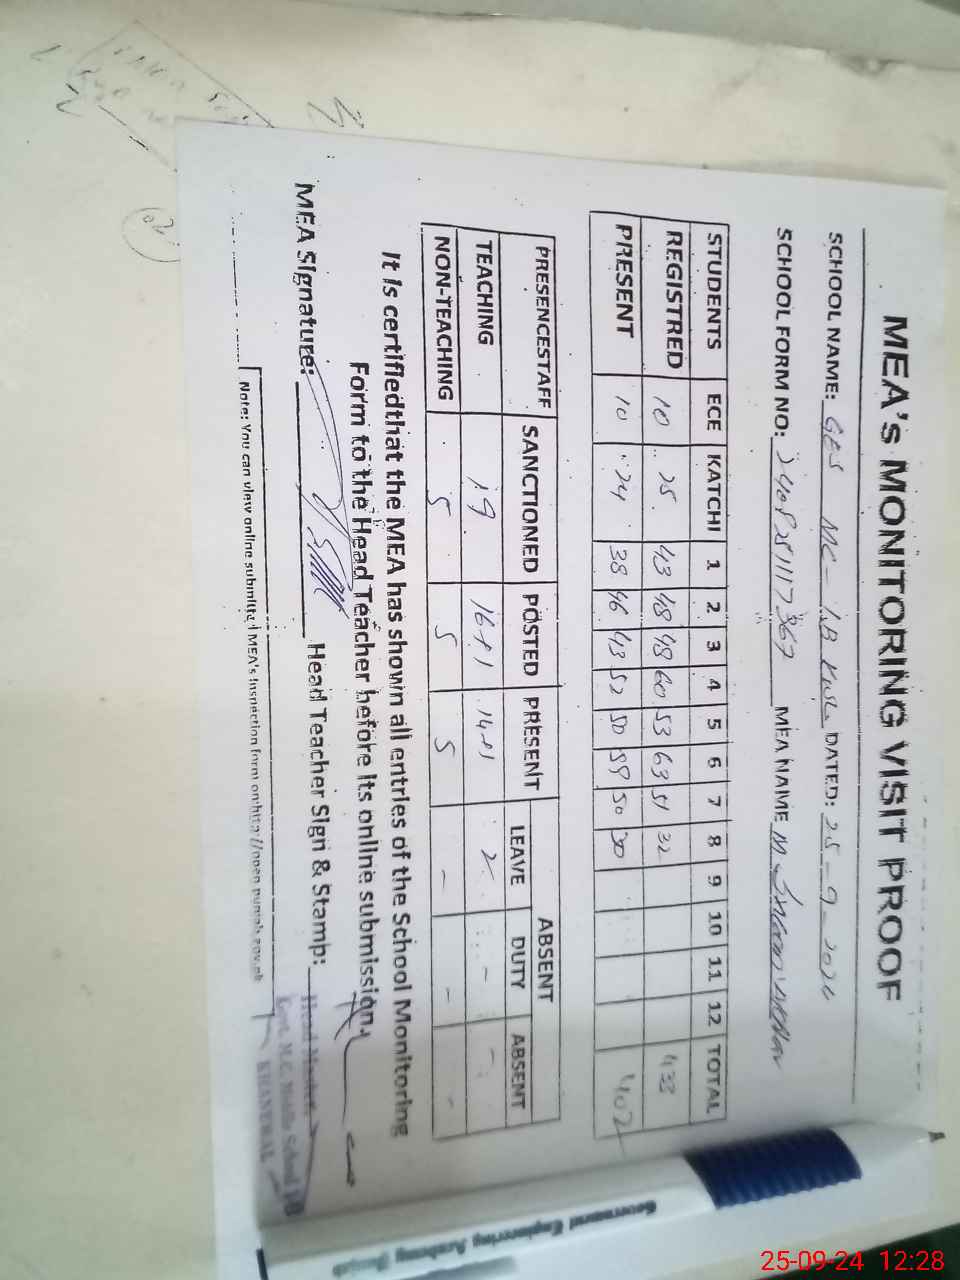 MEA's MONITORING VISIT PROOF
SCHOOL NAME: GES MC - 1B DATED: 25-9-2024
SCHOOL FORM NO: MEA NAME M
STUDENTS ECE KATCHI 1 2 3 4 5 6 7 8 9 10 11 12 TOTAL
REGISTRED 10 25 43 48 48 60 53 63 51 32 433
PRESENT 10 24 38 46 43 52 50 59 50 30 402
PRESENCESTAFF SANCTIONED POSTED PRESENT ABSENT
LEAVE DUTY ABSENT
TEACHING 19 16+1 14+1 2 - -
NON-TEACHING 5 5 5 - - -
It is certifiedthat the MEA has shown all entries of the School Monitoring
Form to the Head Teacher before its online submission.
MEA Signature: Head Teacher Sign & Stamp:
Head Master
Govt. M.C. Middle School 1B
KHANEWAL
Note: You can view online submitted MEA's Inspection form on:http://open.punjab.gov.pk
Government Engineering Academy Punjab
25-09-24 12:28